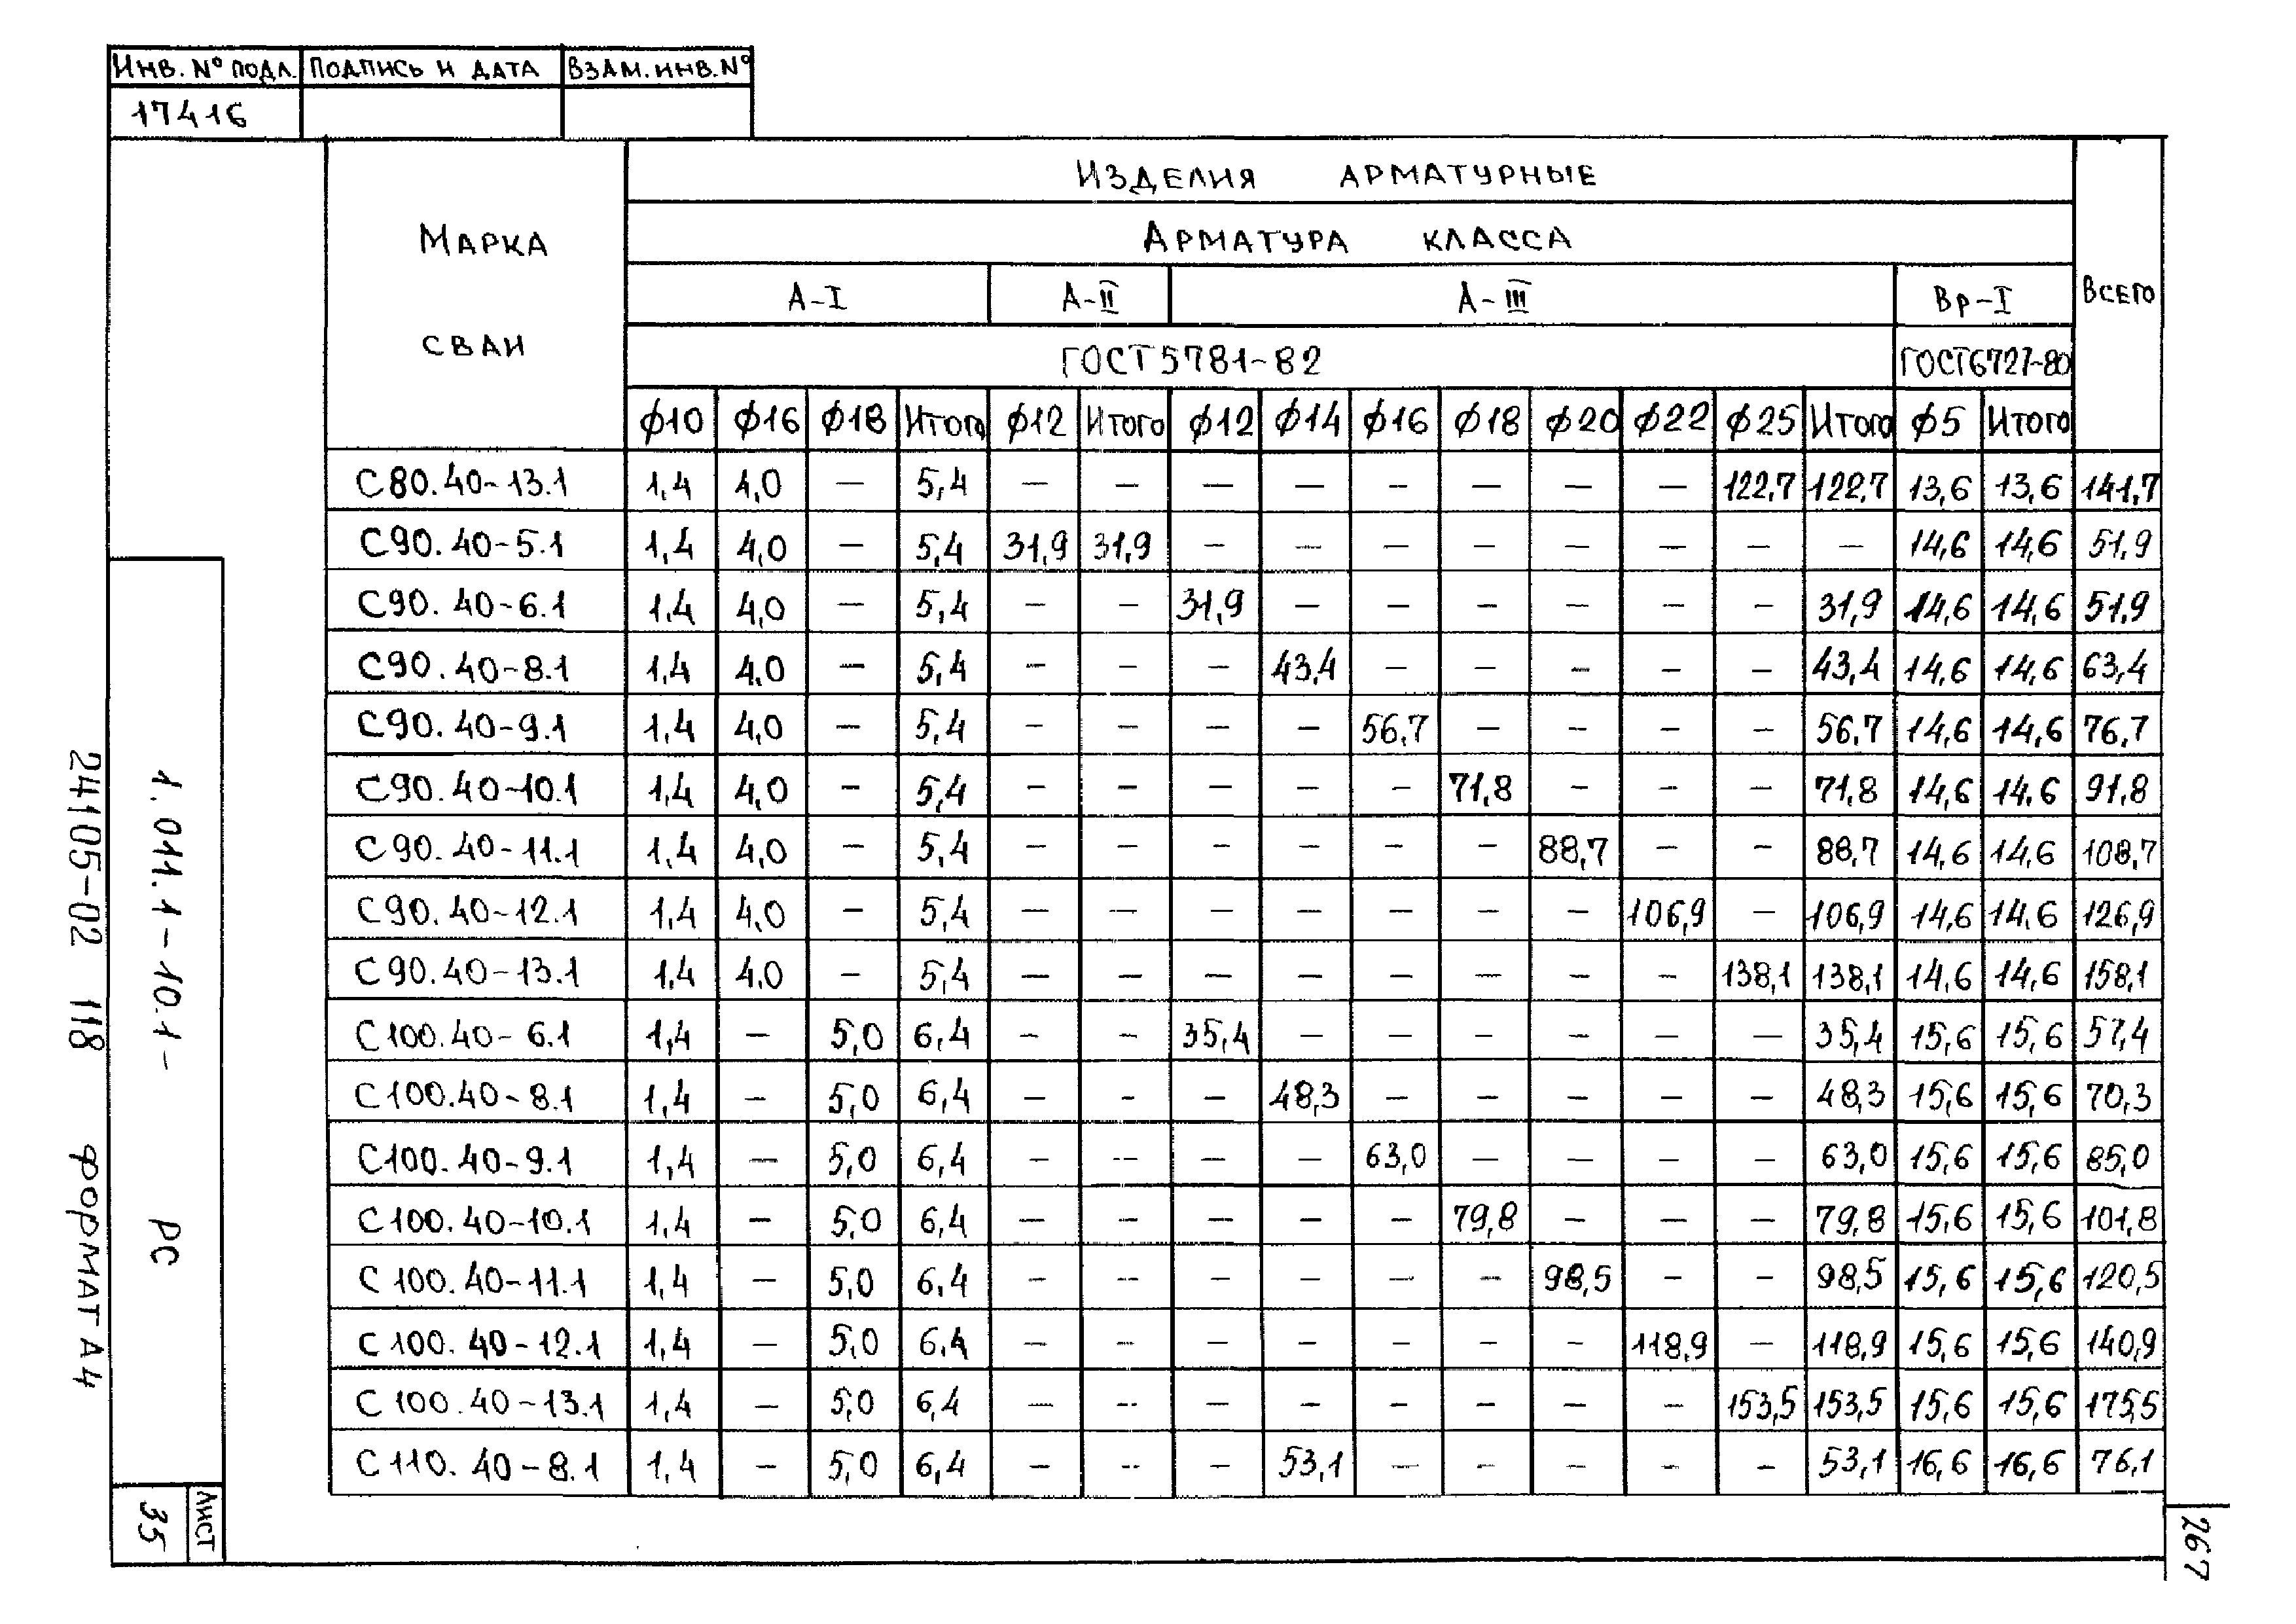 Инв. № подл. Подпись и дата Взам. инв. №
17416
Марка сваи Изделия арматурные Всего
Арматура класса
А-I А-II А-III Вр-I
ГОСТ 5781-82 ГОСТ 6727-80
ϕ10 ϕ16 ϕ18 Итого ϕ12 Итого ϕ12 ϕ14 ϕ16 ϕ18 ϕ20 ϕ22 ϕ25 Итого ϕ5 Итого
С80.40-13.1 1,4 4,0 — 5,4 — — — — — — — — 122,7 122,7 13,6 13,6 141,7
С90.40-5.1 1,4 4,0 — 5,4 31,9 31,9 — — — — — — — — 14,6 14,6 51,9
С90.40-6.1 1,4 4,0 — 5,4 — — 31,9 — — — — — — 31,9 14,6 14,6 51,9
С90.40-8.1 1,4 4,0 — 5,4 — — — 43,4 — — — — — 43,4 14,6 14,6 63,4
С90.40-9.1 1,4 4,0 — 5,4 — — — — 56,7 — — — — 56,7 14,6 14,6 76,7
С90.40-10.1 1,4 4,0 — 5,4 — — — — — 71,8 — — — 71,8 14,6 14,6 91,8
С90.40-11.1 1,4 4,0 — 5,4 — — — — — — 88,7 — — 88,7 14,6 14,6 108,7
С90.40-12.1 1,4 4,0 — 5,4 — — — — — — — 106,9 — 106,9 14,6 14,6 126,9
С90.40-13.1 1,4 4,0 — 5,4 — — — — — — — — 138,1 138,1 14,6 14,6 158,1
С100.40-6.1 1,4 — 5,0 6,4 — — 35,4 — — — — — — 35,4 15,6 15,6 57,4
С100.40-8.1 1,4 — 5,0 6,4 — — — 48,3 — — — — — 48,3 15,6 15,6 70,3
С100.40-9.1 1,4 — 5,0 6,4 — — — — 63,0 — — — — 63,0 15,6 15,6 85,0
С100.40-10.1 1,4 — 5,0 6,4 — — — — — 79,8 — — — 79,8 15,6 15,6 101,8
С100.40-11.1 1,4 — 5,0 6,4 — — — — — — 98,5 — — 98,5 15,6 15,6 120,5
С100.40-12.1 1,4 — 5,0 6,4 — — — — — — — 118,9 — 118,9 15,6 15,6 140,9
С100.40-13.1 1,4 — 5,0 6,4 — — — — — — — — 153,5 153,5 15,6 15,6 175,5
С110.40-8.1 1,4 — 5,0 6,4 — — — 53,1 — — — — — 53,1 16,6 16,6 76,1
1.011.1-10.1- РС
Лист
35
24105-02 118 Формат А4
267